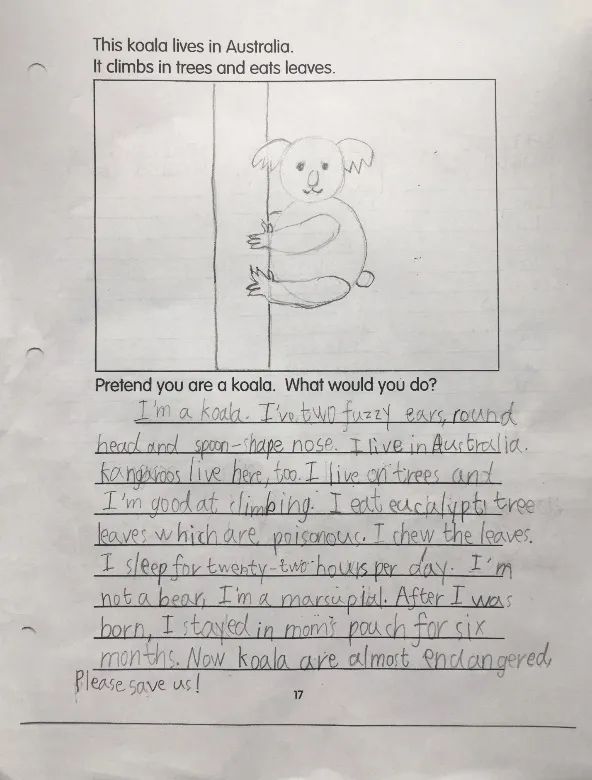 This koala lives in Australia.
It climbs in trees and eats leaves.
Pretend you are a koala. What would you do?
I'm a koala. I've two fuzzy ears, round
head and spoon-shape nose. I live in Australia.
Kangaroos live here, too. I live on trees and
I'm good at climbing. I eat eucalypti tree
leaves which are poisonous. I chew the leaves.
I sleep for twenty-two hours per day. I'm
not a bear, I'm a marsupial. After I was
born, I stayed in mom's pouch for six
months. Now koala are almost endangered,
Please save us!
17